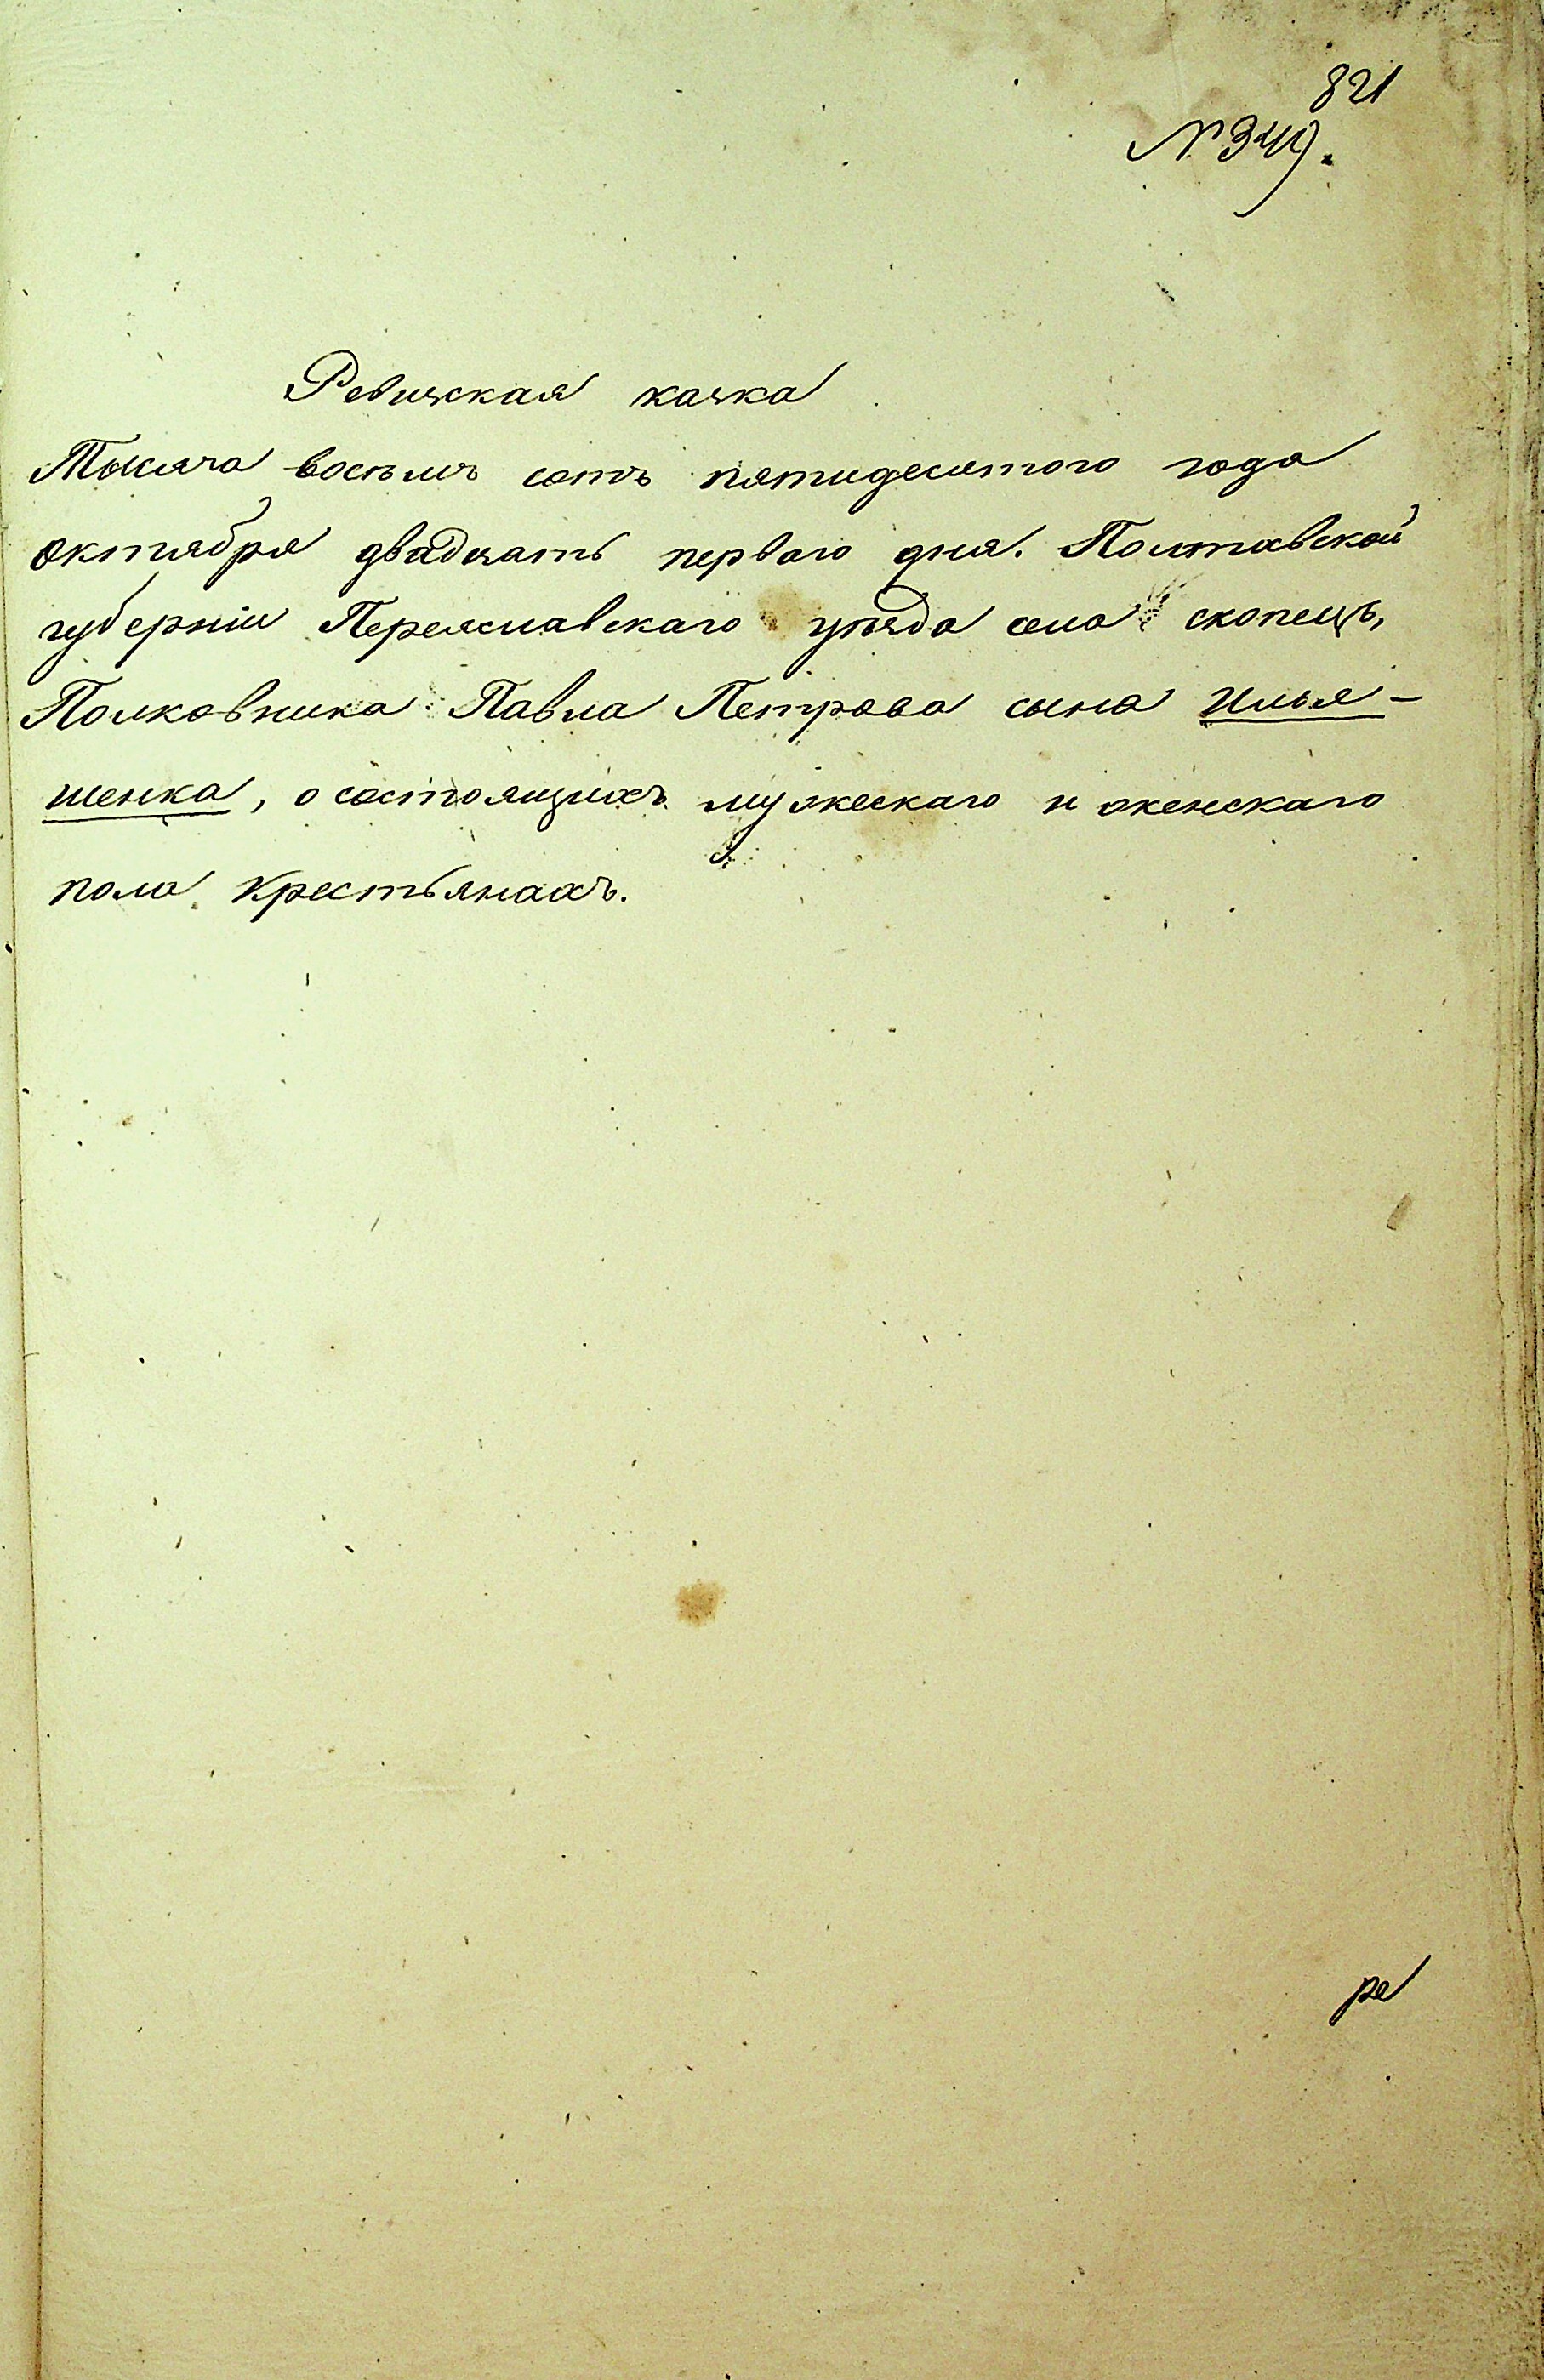 821
№ 349.
Ревижская каска
Тысяча восемъ сотъ пятидесятого года
октября двадцать перваго дня. Полтавской
губерніи Переяславскаго уѣзда села скопецъ,
Полковника Павла Петрова сына Илья-
шенка, о состоящихъ мужескаго и женскаго
пола крестьянахъ.
ре